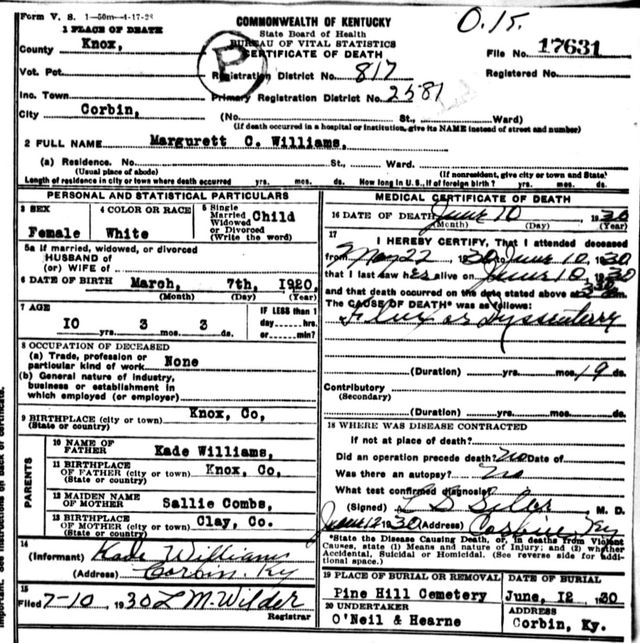 Form V. S. 1—50m—4-17-28
COMMONWEALTH OF KENTUCKY
State Board of Health
BUREAU OF VITAL STATISTICS
CERTIFICATE OF DEATH
O.15.
1 PLACE OF DEATH
County Knox,
File No. 17631
P
Vot. Pct.
Registration District No. 817
Registered No.
Inc. Town
Primary Registration District No. 2581
City Corbin, (No. St., Ward)
(If death occurred in a hospital or institution, give its NAME instead of street and number)
2 FULL NAME Margurett C. Williams,
(a) Residence. No. St., Ward.
(Usual place of abode) (If nonresident, give city or town and State)
Length of residence in city or town where death occurred yrs. mos. ds. How long in U.S., if of foreign birth? yrs. mos. ds.
PERSONAL AND STATISTICAL PARTICULARS
3 SEX 4 COLOR OR RACE 5 Single Married Widowed or Divorced (Write the word)
Female White Child
5a If married, widowed, or divorced
HUSBAND of
(or) WIFE of
6 DATE OF BIRTH March, 7th, 1920.
(Month) (Day) (Year)
7 AGE IF LESS than 1
10 yrs. 3 mos. 3 ds. day----hrs. or----min?
8 OCCUPATION OF DECEASED
(a) Trade, profession or
particular kind of work None
(b) General nature of industry,
business or establishment in
which employed (or employer)
9 BIRTHPLACE (city or town) Knox, Co,
(State or country)
PARENTS
10 NAME OF
FATHER Kade Williams,
11 BIRTHPLACE
OF FATHER (city or town) Knox, Co,
(State or country)
12 MAIDEN NAME
OF MOTHER Sallie Combs,
13 BIRTHPLACE
OF MOTHER (city or town) Clay, Co.
(State or country)
14
(Informant) Kade Williams
(Address) Corbin, Ky
15
Filed 7-10 , 1930 L M. Wilder
Registrar
MEDICAL CERTIFICATE OF DEATH
16 DATE OF DEATH June 10 1930
(Month) (Day) (Year)
17
I HEREBY CERTIFY, That I attended deceased
from May 22 1930 to June 10, 1930
that I last saw her alive on June 10, 1930
and that death occurred on the date stated above at
The CAUSE OF DEATH* was as follows:
or Dyssentery
(Duration) yrs. mos. 19 ds.
Contributory
(Secondary)
(Duration) yrs. mos. ds.
18 WHERE WAS DISEASE CONTRACTED
If not at place of death?
Did an operation precede death? no Date of
Was there an autopsy? no
What test confirmed diagnosis?
(Signed) Siler M. D.
June 12 1930 (Address) Corbin Ky
*State the Disease Causing Death, or, in deaths from Violent
Causes, state (1) Means and nature of Injury; and (2) whether
Accidental, Suicidal or Homicidal. (See reverse side for addi-
tional space.)
19 PLACE OF BURIAL OR REMOVAL DATE OF BURIAL
Pine Hill Cemetery June, 12 1930
20 UNDERTAKER ADDRESS
O'Neil & Hearne Corbin, Ky.